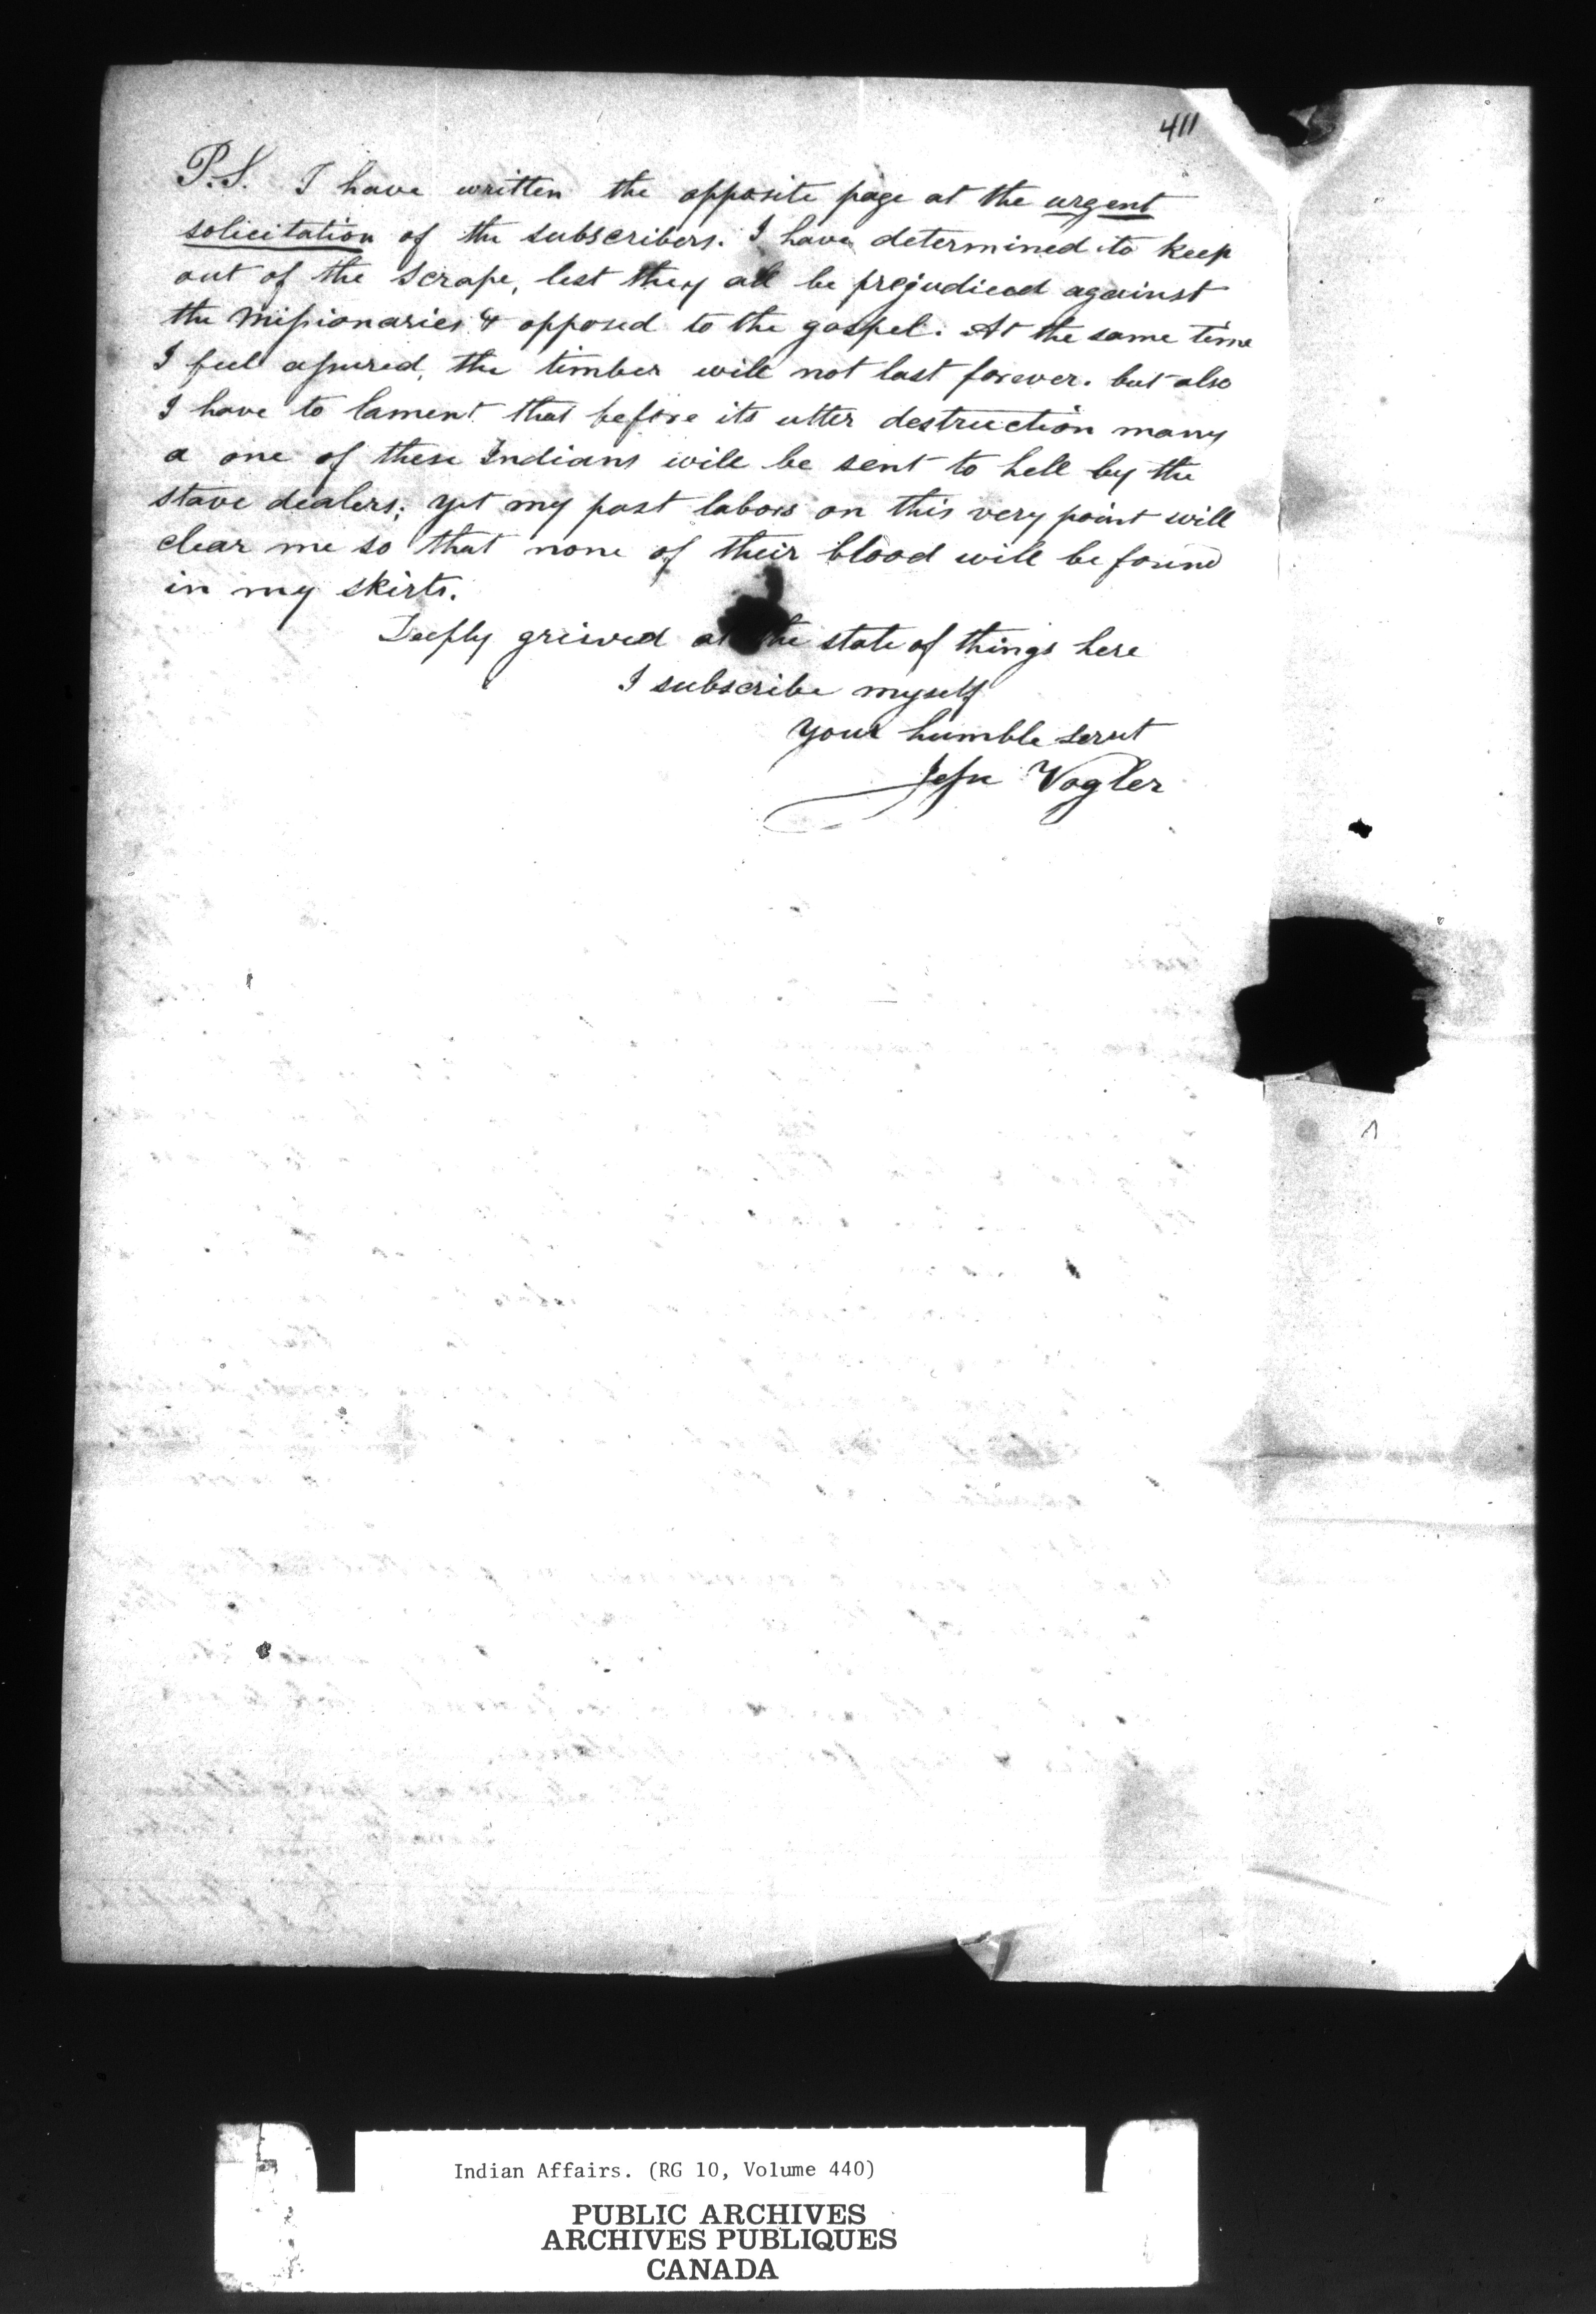 411
P.S. I have written the opposite page at the urgent
solicitation of the subscribers. I have determined to keep
out of the scrape, lest they all be prejudiced against
the missionaries & opposed to the gospel. At the same time
I feel assured, the timber will not last forever. but also
I have to lament that before its utter destruction many
a one of these Indians will be sent to hell by the
stave dealers; yet my past labors on this very point will
clear me so that none of their blood will be found
in my skirts.
Deeply grieved at the state of things here
I subscribe myself
your humble servt
Jesse Vogler
Indian Affairs. (RG 10, Volume 440)
PUBLIC ARCHIVES
ARCHIVES PUBLIQUES
CANADA